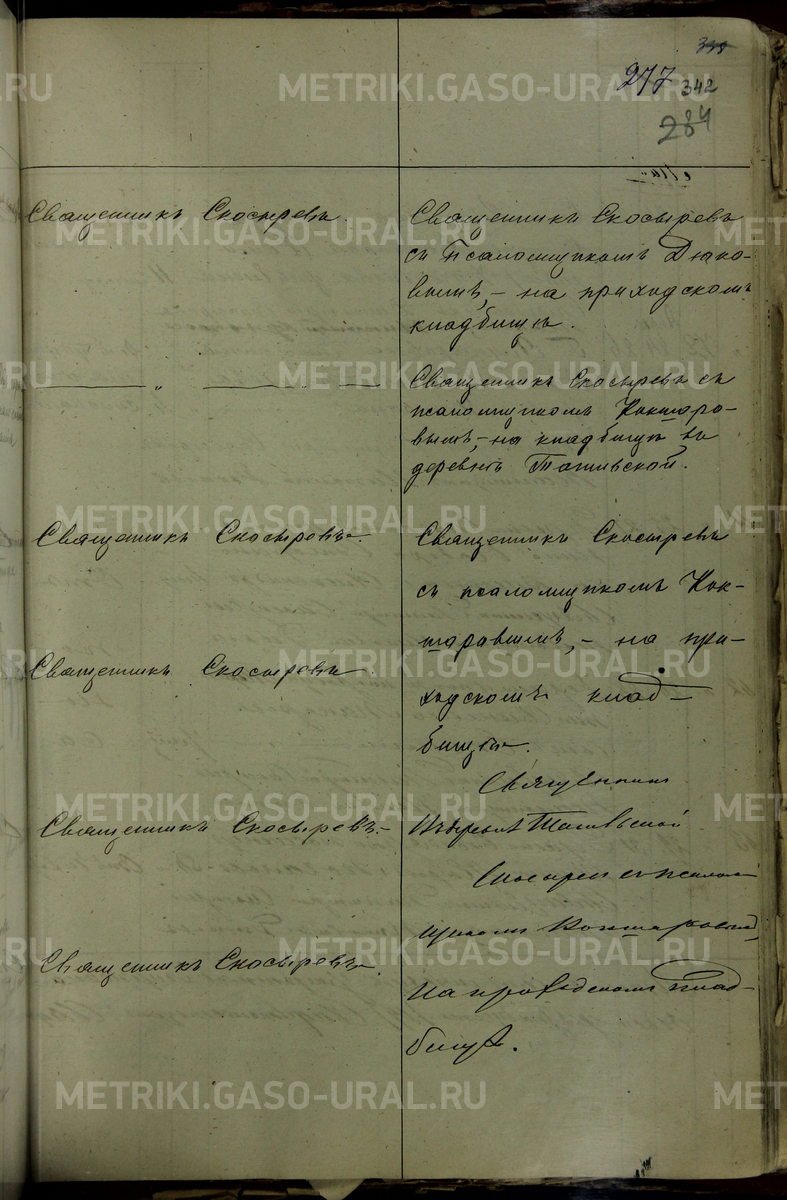 335
277 342
284
Священникъ Скосыревъ.
Священникъ Скосыревъ
съ Псаломщикомъ Дюко-
вымъ, – на приходскомъ
кладбищѣ.
— „ —
Священникъ Скосыревъ съ
псаломщикомъ Кокшаро-
вымъ, – на кладбищѣ въ
деревнѣ
Священникъ Скосыревъ.
Священникъ Скосыревъ
съ псаломщикомъ Кок-
шаровымъ, – на при-
ходскомъ клад-
бищѣ.
Священникъ Скосыревъ
Священникъ
Скосыревъ съ псалом
щикомъ Кокшаровымъ
на приходскомъ клад-
бищѣ.
Священникъ Скосыревъ.
Священникъ Скосыревъ.
METRIKI.GASO-URAL.RU